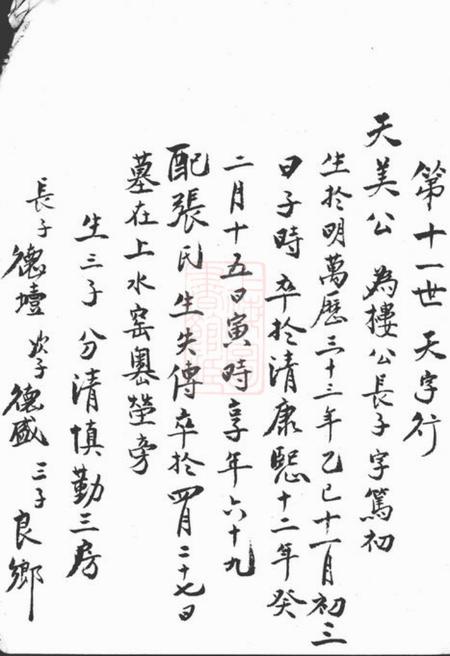 第十一世 天字行
天美公 為樓公長子字篤初
生於明萬歷三十三年乙巳十一月初三
日子時 卒於清康熙十二年癸
二月十五日寅時享年六十九
配張氏生失傳卒於四月二十七日
墓在上水窑墺塋旁
生三子 分清慎勤三房
長子德壇 次子德盛 三子良鄉